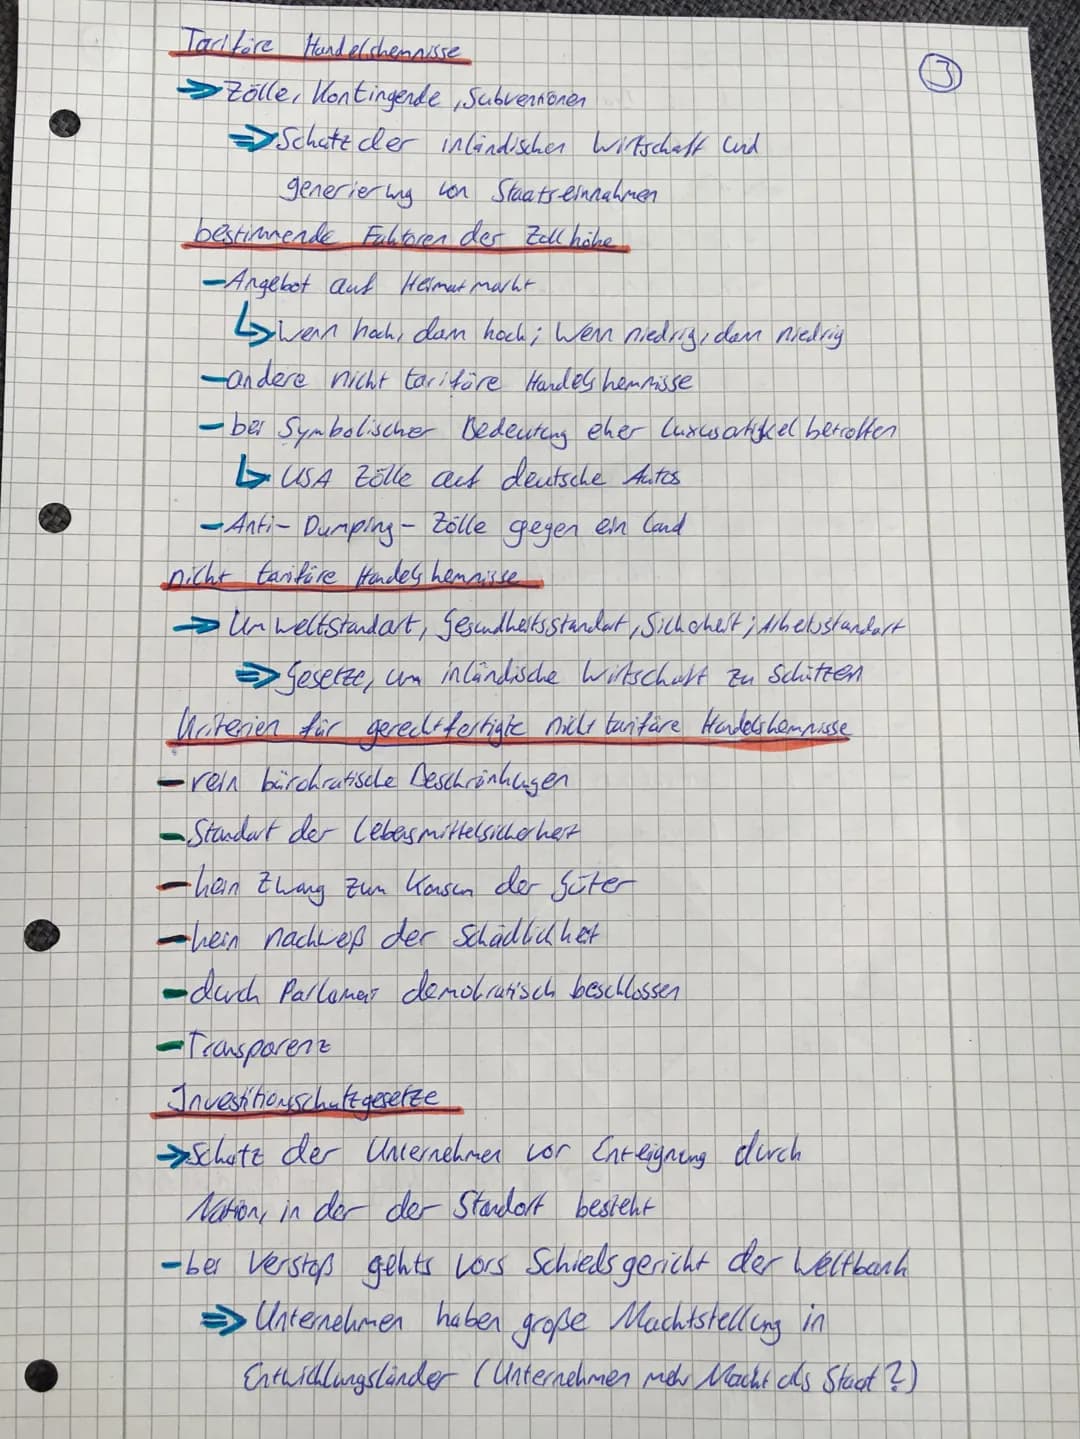 Tarifäre Handelshemnisse
③
⇒ Zölle, Kontingende, Subventionen
⇒ Schutz der inländischen Wirtschaft und
generierung von Staatseinnahmen
bestimmende Faktoren der Zollhöhe
- Angebot auf Heimatmarkt
↳ Wenn hoch, dann hoch; Wenn niedrig, dann niedrig
- andere nicht tarifäre Handelshemnisse
- bei Symbolischer Bedeutung eher Luxusartikel betroffen
↳ USA Zölle auf deutsche Autos
- Anti-Dumping-Zölle gegen ein Land
nicht tarifäre Handelshemnisse
→ Umweltstandart, Gesundheitsstandart, Sicherheit; Arbeitsstandart
⇒ Gesetze, um inländische Wirtschaft zu Schützen
Kriterien für gerechtfertigte nicht tarifäre Handelshemnisse
- rein bürokratische Beschränkungen
- Standart der Lebensmittelsicherheit
- kein Zwang zum Konsum der Güter
- kein nachweiß der Schädlichkeit
- durch Parlament demokratisch beschlossen
- Transparenz
Investitionsschutzgesetze
→ Schutz der Unternehmen vor Enteignung durch
Nation, in der der Standort besteht
- bei Verstoß gehts vors Schiedsgericht der Weltbank
⇒ Unternehmen haben große Machtstellung in
Entwicklungsländer (Unternehmen mehr Macht als Staat?)